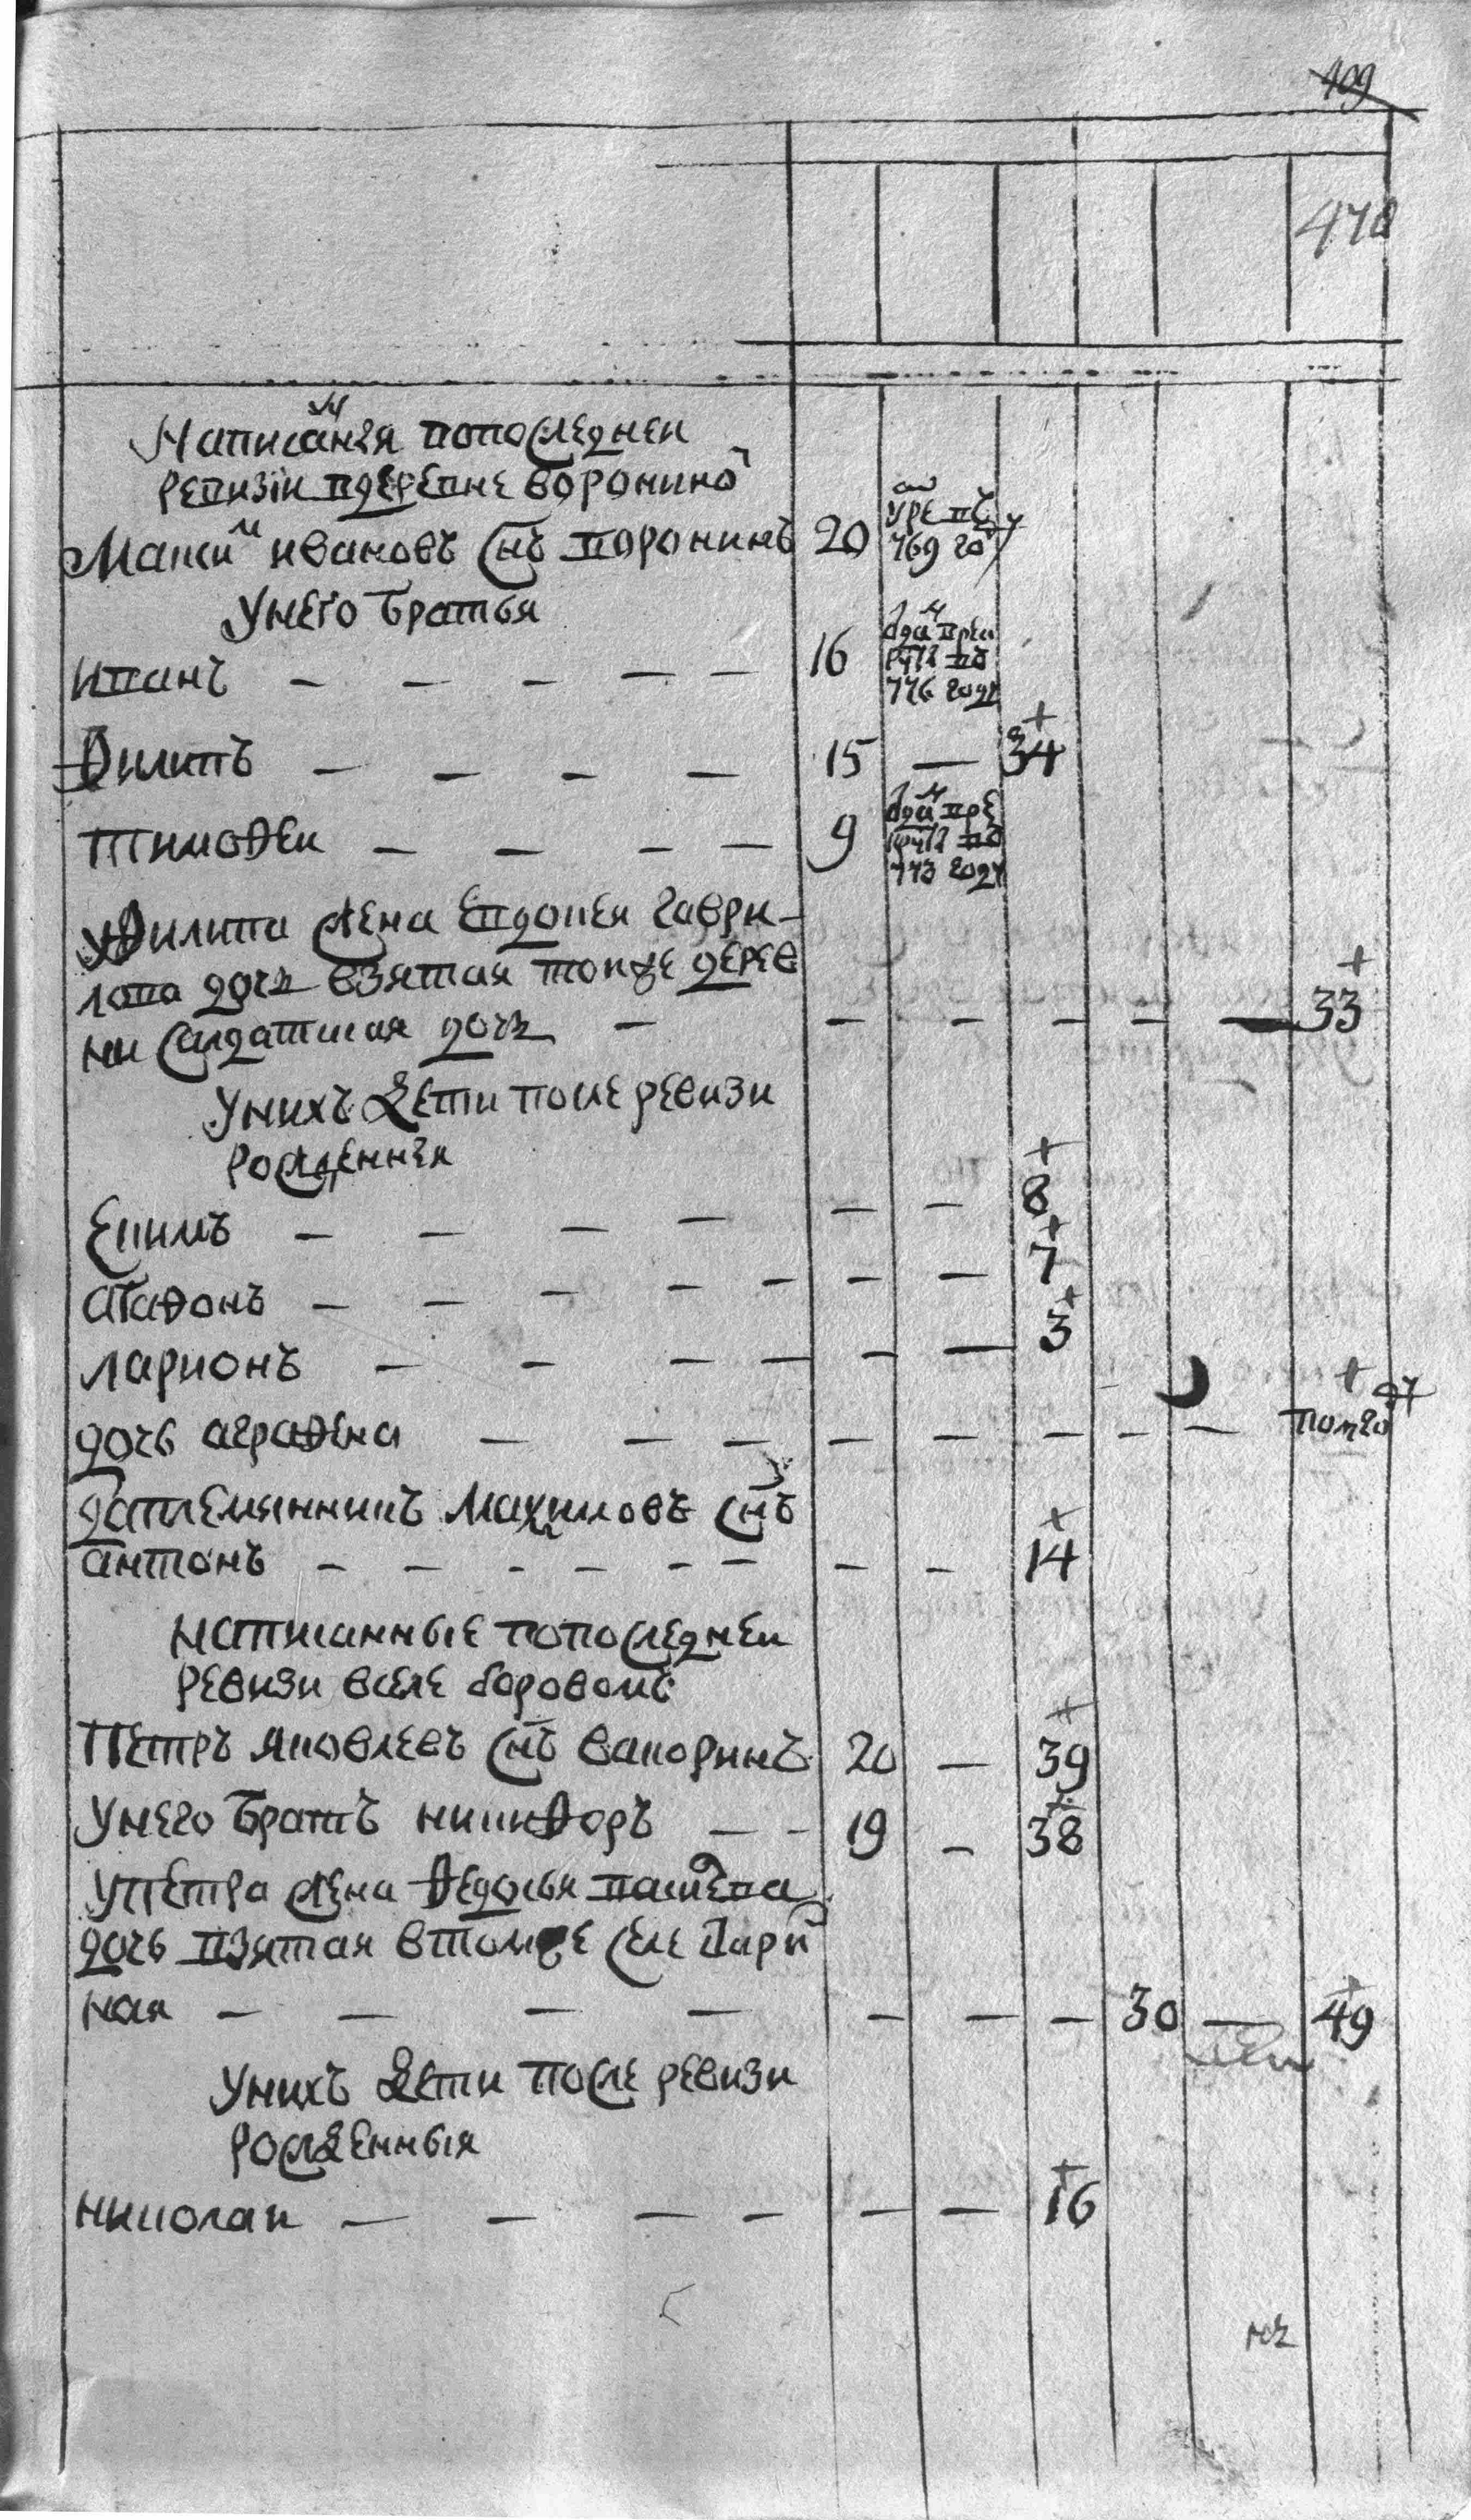 409
478
Написанныя попоследней
ревизіи вдеревне воронино
Маѯимъ ивановъ снъ воронинъ 20 умре въ 769 году
Унего братья
иванъ — — — — — 16 отданъ врекруты въ 776 году
Филипъ — — — — 15 — 34
тимофеи — — — — 9 отданъ врекруты въ 773 году
уФилипа жена Евдокея гаври-
лова дочь взятая тоиже дерев
ни салдатская дочь — — — — — — 33
Унихъ дети после ревизи
рожденныя
Екимъ — — — — — — 8
агафонъ — — — — — — — 7
ларионъ — — — — — — 3
дочь аграфена — — — — — — — — полгоду
племянникъ Махимовъ снъ
антонъ — — — — — — — — 14
написанные попоследнеи
ревизи вселе боровомъ
Петръ яковлевъ снъ вакоринъ 20 — 39
Унего братъ никифоръ — — 19 — 38
упетра жена Федосья
дочь взятая втомже селе
ная — — — — — — — 30 — 49
Унихъ дети после ревизи
рожденныя
николаи — — — — — — 16